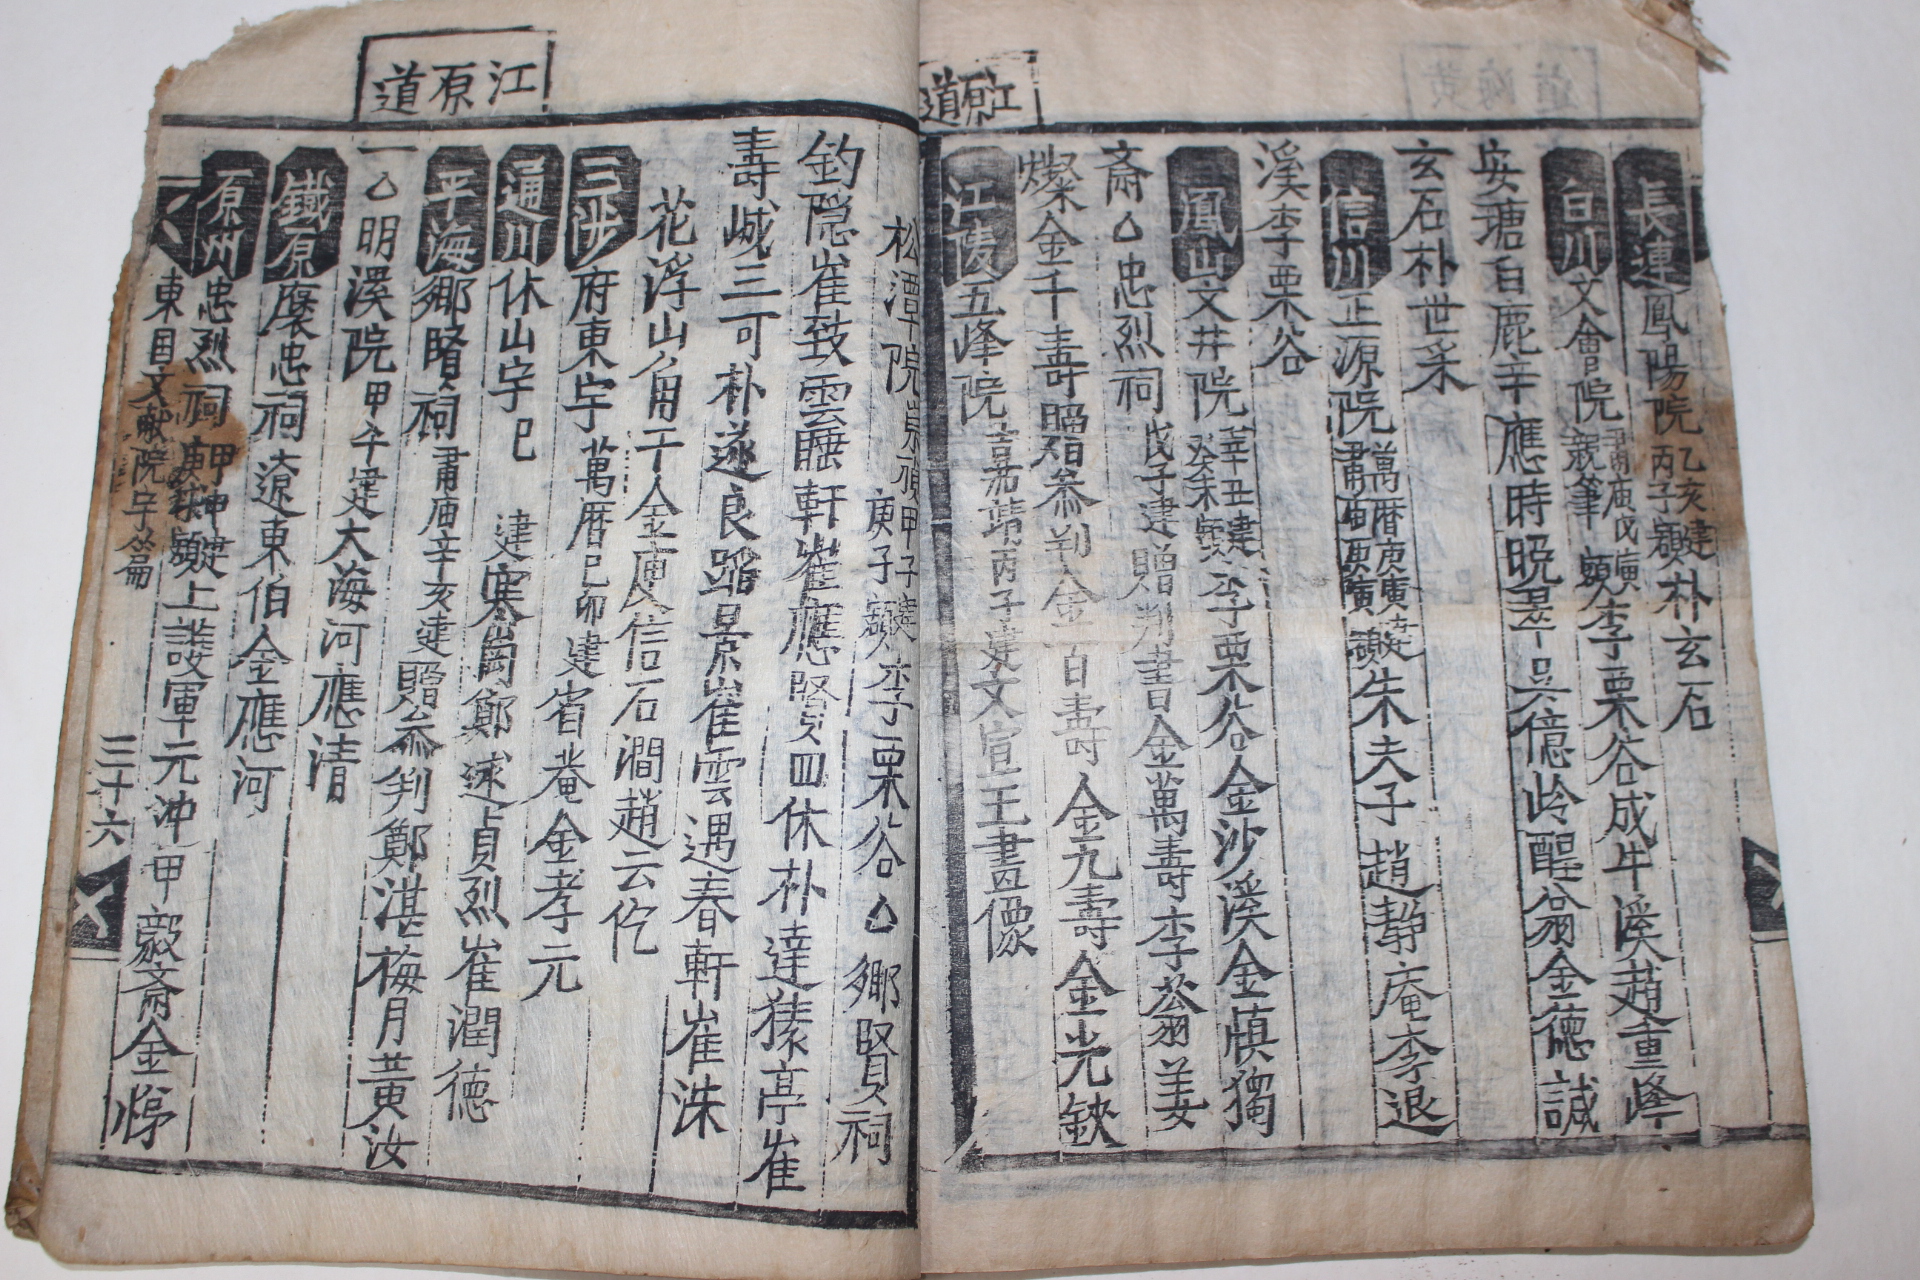 江原道
長連鳳陽院乙亥建丙子額朴玄石
白川文會院肅庙戊寅親筆額李栗谷成牛溪趙重峰
安瑭白鹿辛應時晩翠吳億岭醒翁金德諴
玄石朴世采
信川正源院萬曆庚寅建肅庙庚寅額朱夫子趙靜庵李退
溪李栗谷
鳳山文井院辛丑建癸未額李栗谷金沙溪金愼獨
斎△忠烈祠戊子建贈判書金萬壽李蓊姜
燦金千壽贈叅判金百壽金九壽金光鋏
江陵五峰院嘉靖丙子建文宣王畫像
江原道
松潭院崇禎甲子建庚子額李栗谷△鄉賢祠
釣隐崔致雲睡軒崔應賢四休朴達猿亭崔
壽峸三可朴遂良踏景崔雲遇春軒崔洙
花浮山角干金庾信石澗趙云仡
三涉府東宇萬曆己卯建省菴金孝元
通川休山宇巳建寒崗鄭逑貞烈崔潤德
平海鄉賢祠肅庙辛亥建贈叅判鄭湛梅月黃汝
一△明溪院甲午建大海河應清
鐵原褒忠祠遼東伯金應河
原州忠烈祠甲申建庚戌額上護軍元冲甲毅斎金悌
東國文献院宇篇
三十六